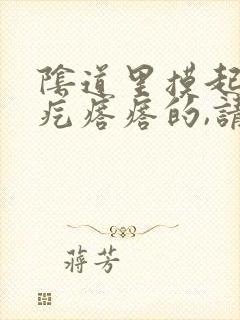 陰道里摸起
疙瘩瘩的,請
蔣芳